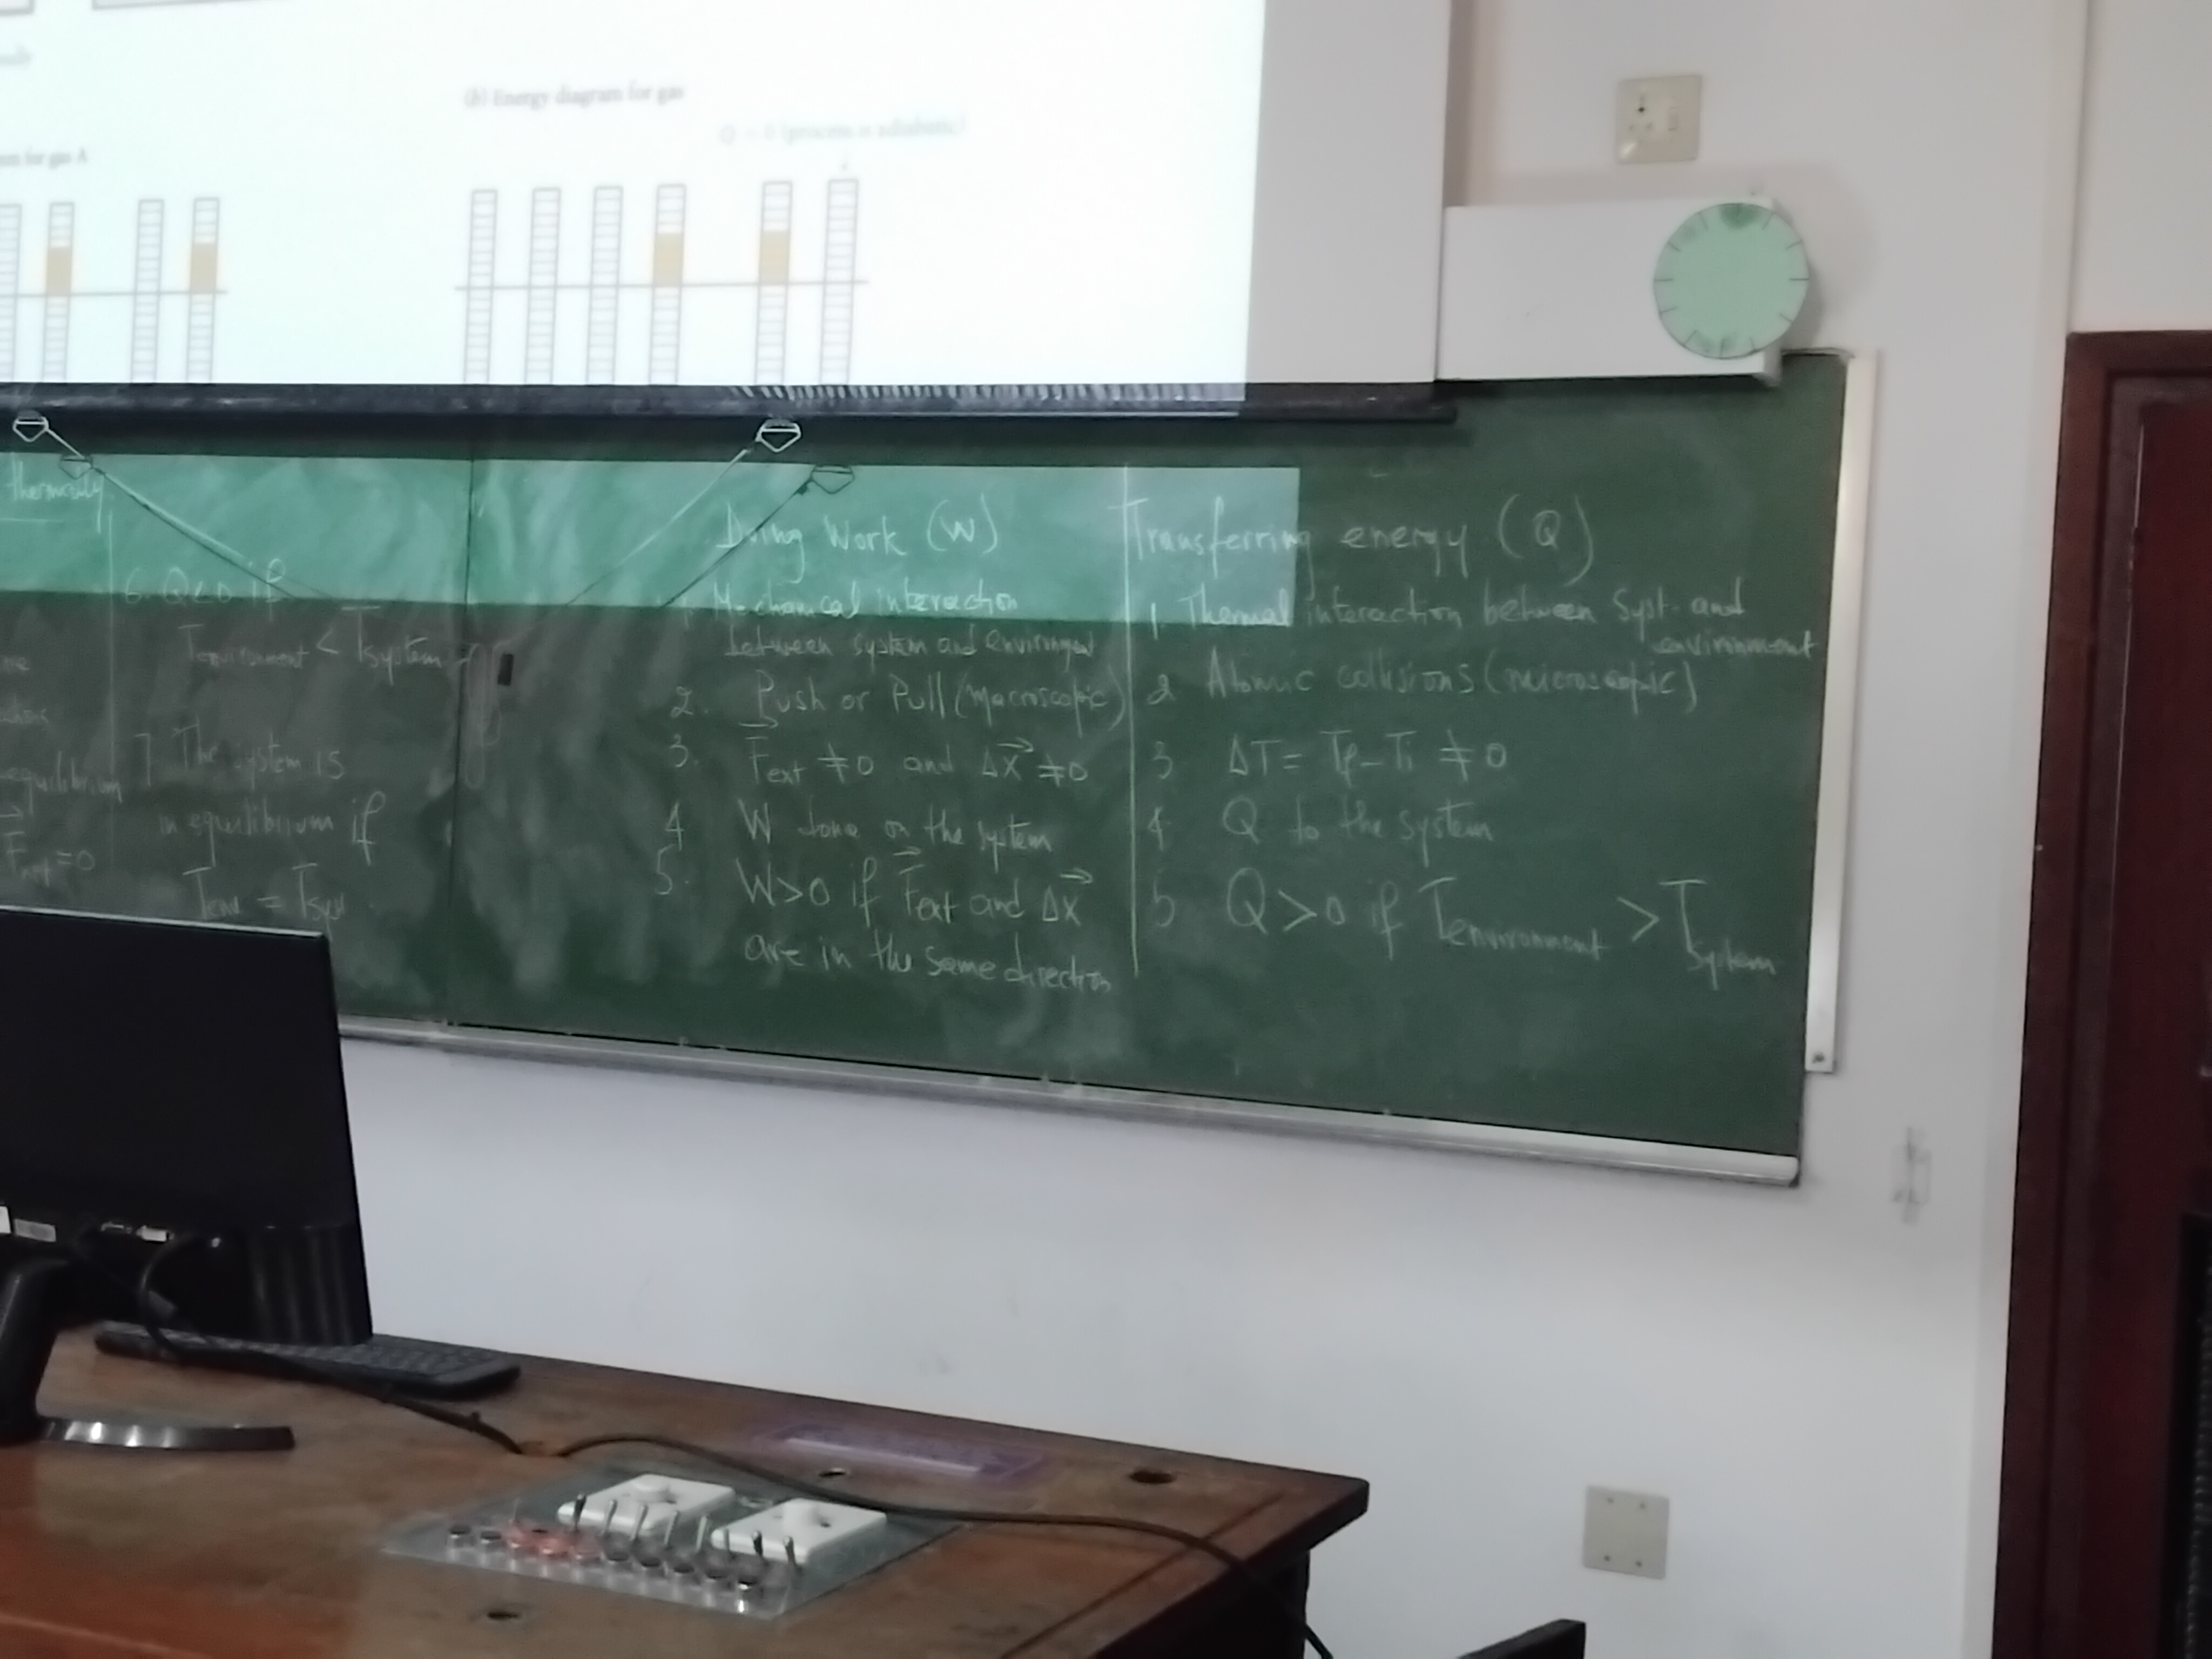 (b) Energy diagram for gas
Q = 0 (process is adiabatic)
for gas A
thermally
6. Q<0 if
Tenvironment < Tsystem
7. The system is
in equilibrium if
Tenv = Tsyst
equilibrium
=0
Doing Work (W)
1. Mechanical interaction
between system and environment
2. Push or Pull (macroscopic)
3. Fext ≠0 and Δx ≠0
4 W done on the system
5. W>0 if Fext and Δx
are in the same direction
Transferring energy (Q)
1. Thermal interaction between Syst. and
environment
2 Atomic collisions (microscopic)
3 ΔT = Tf - Ti ≠ 0
4. Q to the system
5 Q > 0 if Tenvironment > Tsystem